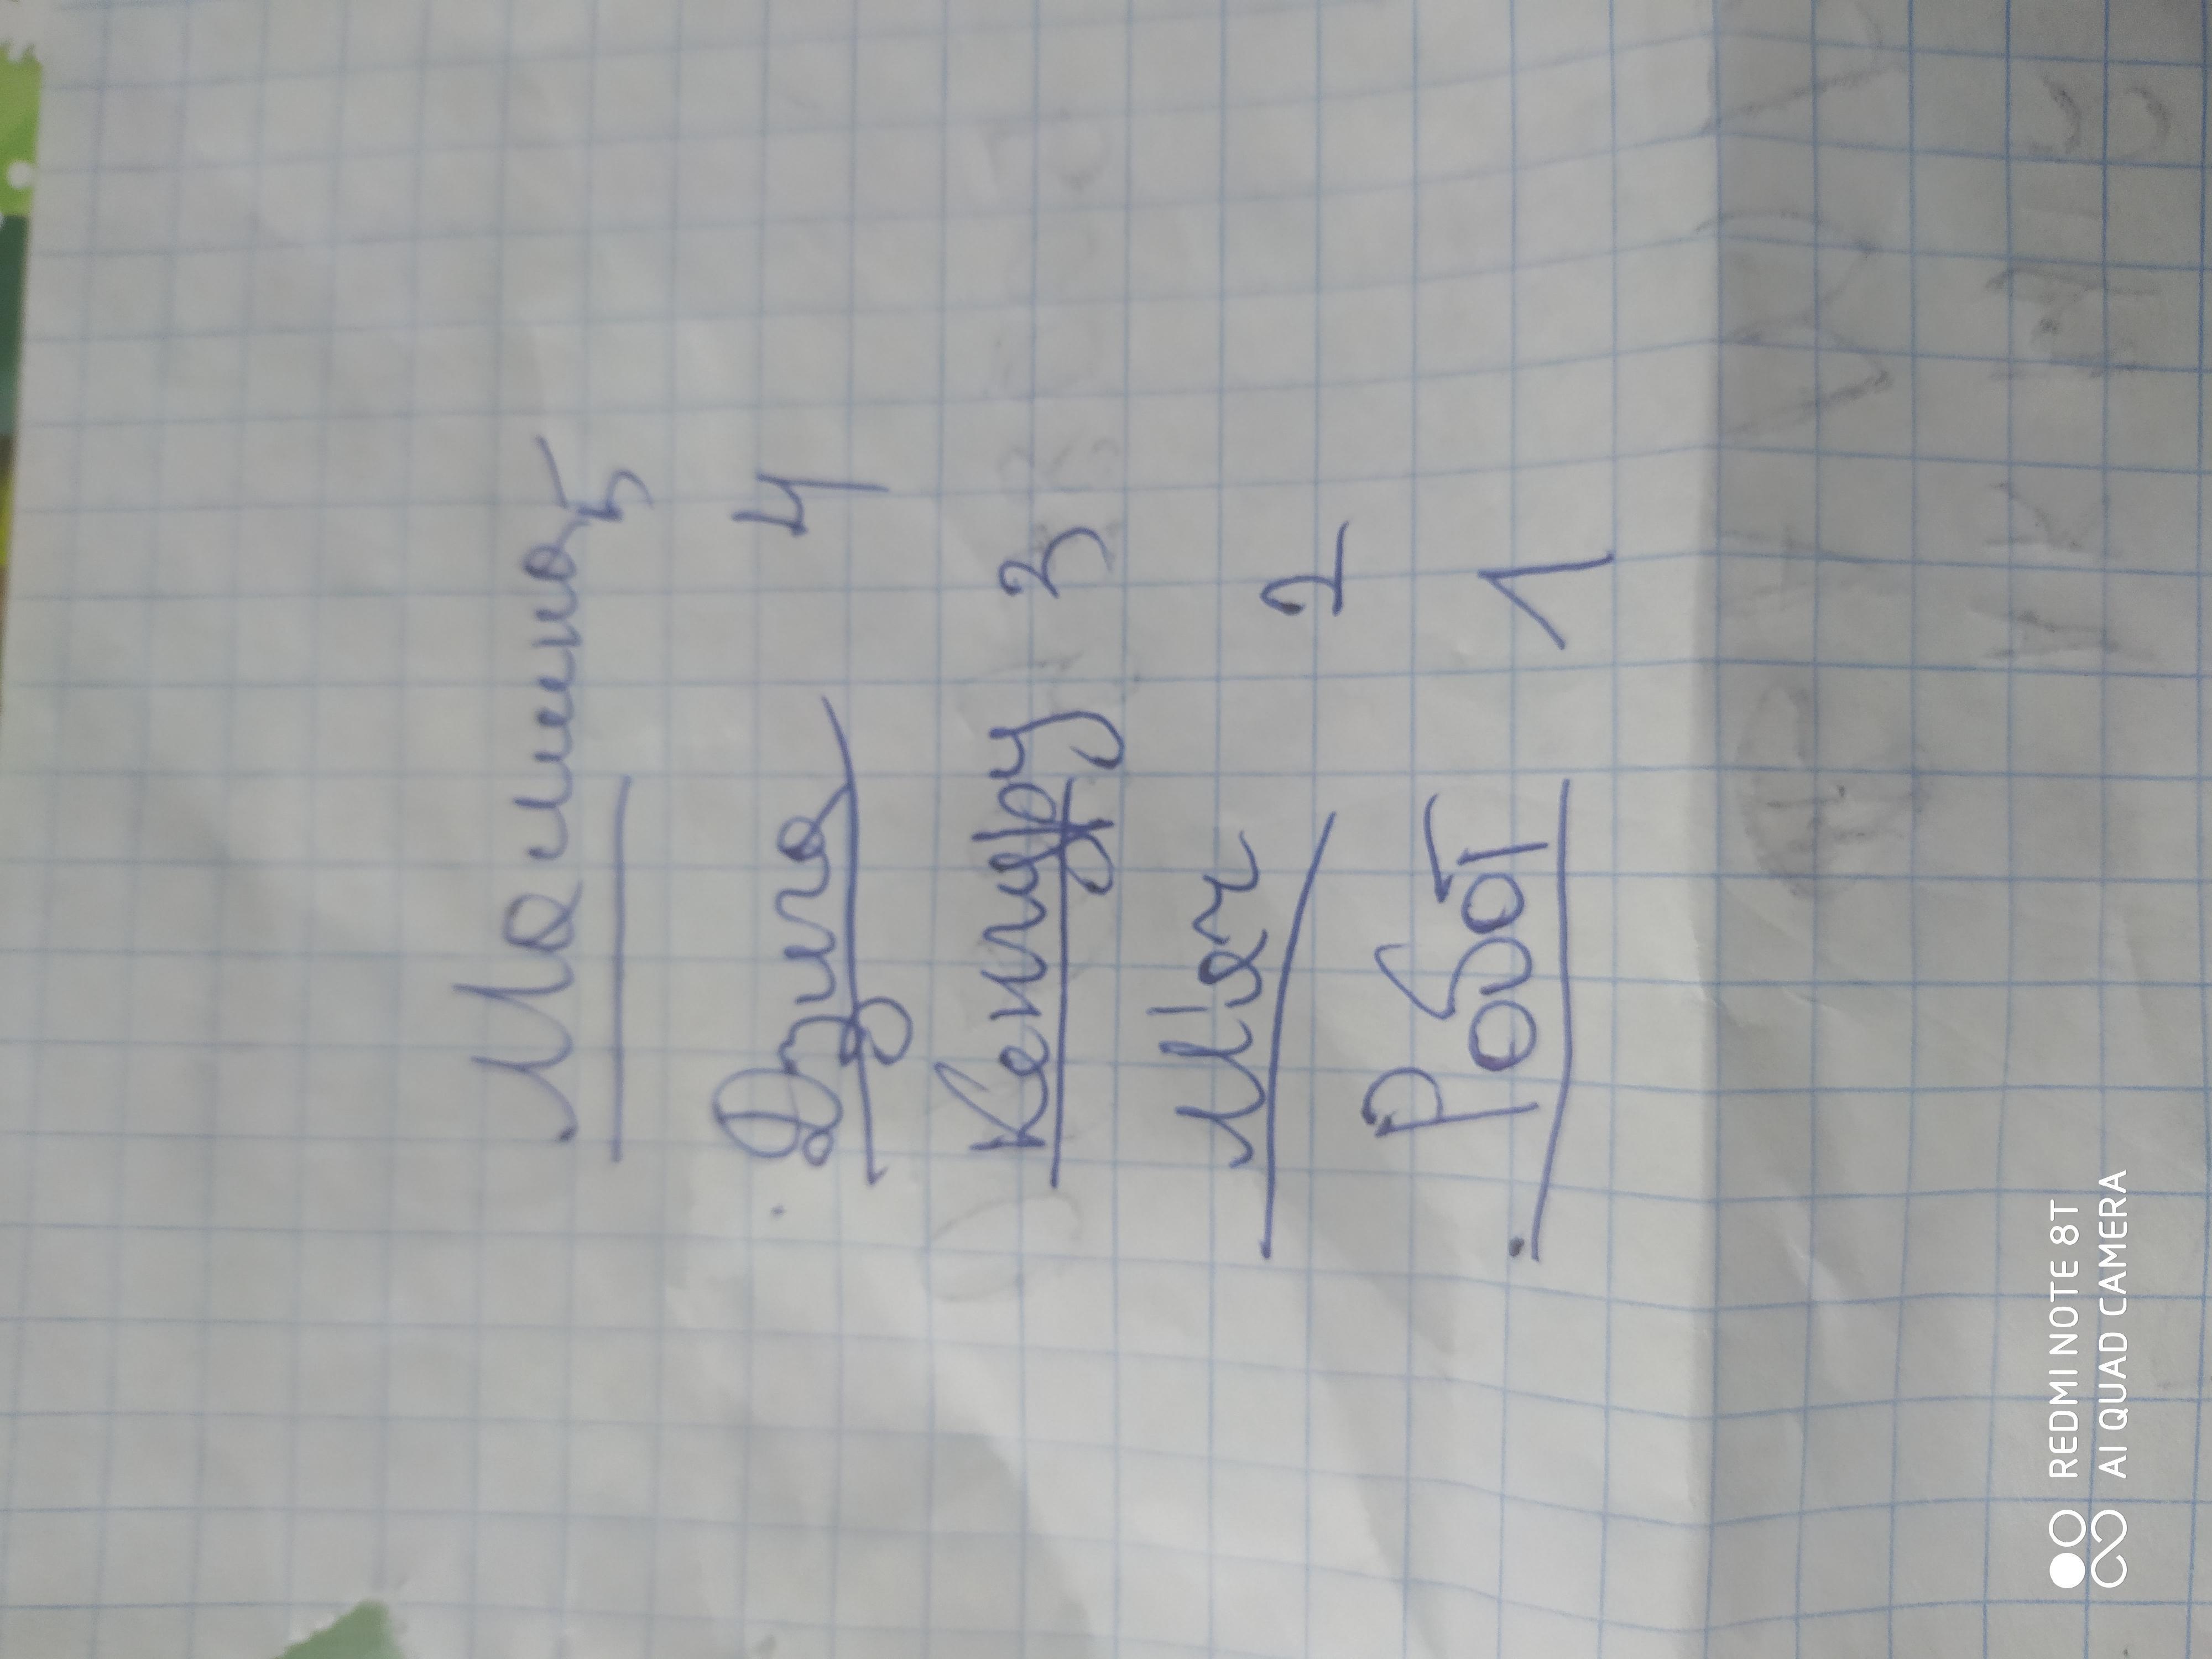 Машина 5
Дзига 4
Кенгуру 3
М'яч 2
Робот 1
REDMI NOTE 8T
AI QUAD CAMERA